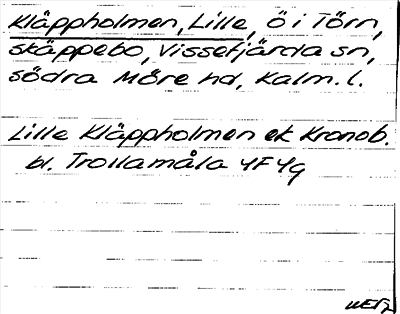 Kläppholmen, Lille, ö i Törn,
skäppebo, Vissefjärda sn,
södra Möre hd, Kalm. l.
Lille Kläppholmen ek Kronob.
bl. Trollamåla 4F4g